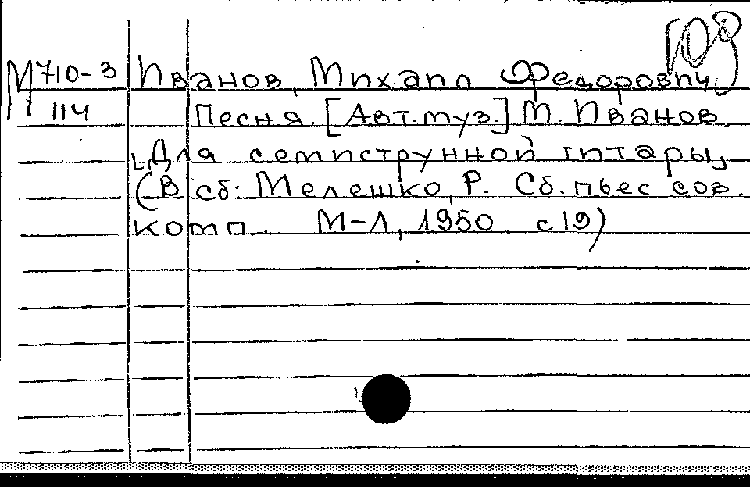 108
М710-3 Иванов, Михаил Федорович
114 Песня. [Авт. муз.] М. Иванов.
Для семиструнной гитары.
(В сб: Мелешко, Р. Сб. пьес сов.
комп. М-Л, 1950. с 19)